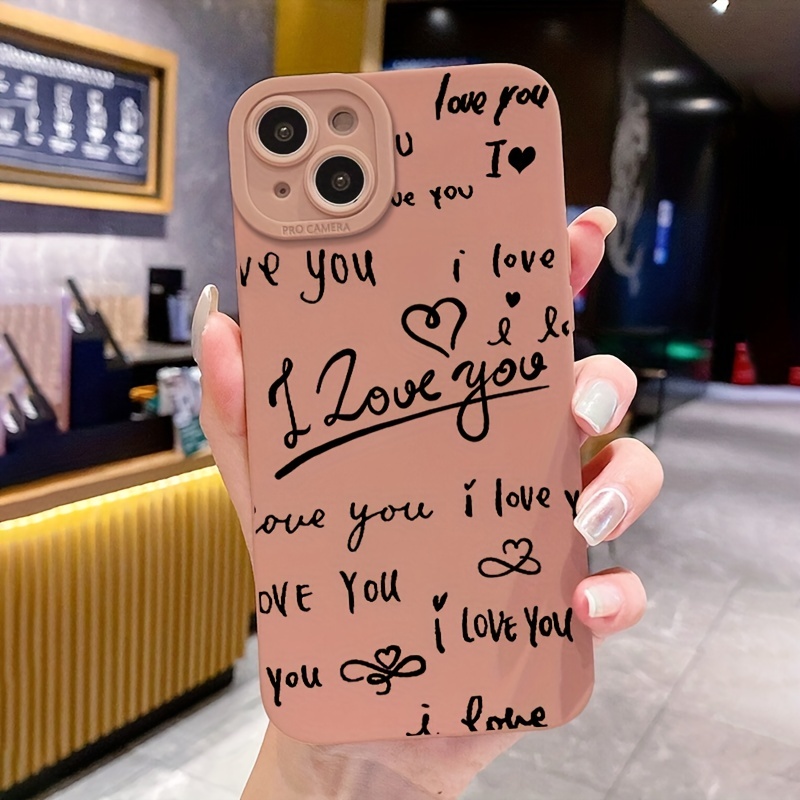 love you
u
I♥
ve you
PRO CAMERA
ve you
i love
i lo
I Love you
ove you
i love y
OVE YOU
i LOVE YOU
you
i love